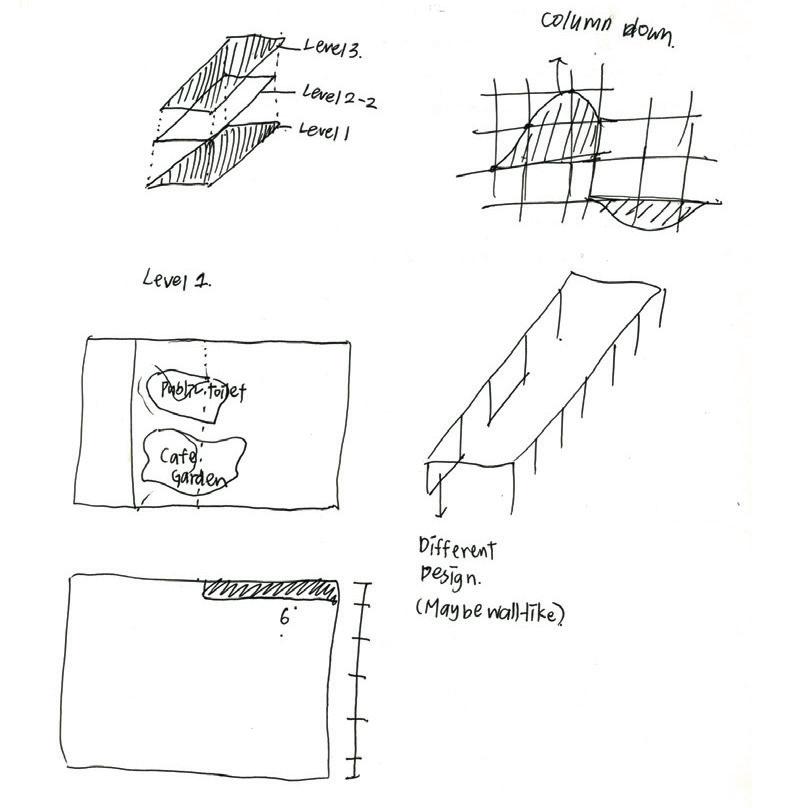 Level 3.
Level 2-2
Level 1
Column down.
Level 1.
Public toilet
Cafe
Garden
6
Different
Design.
(Maybe wall-like)